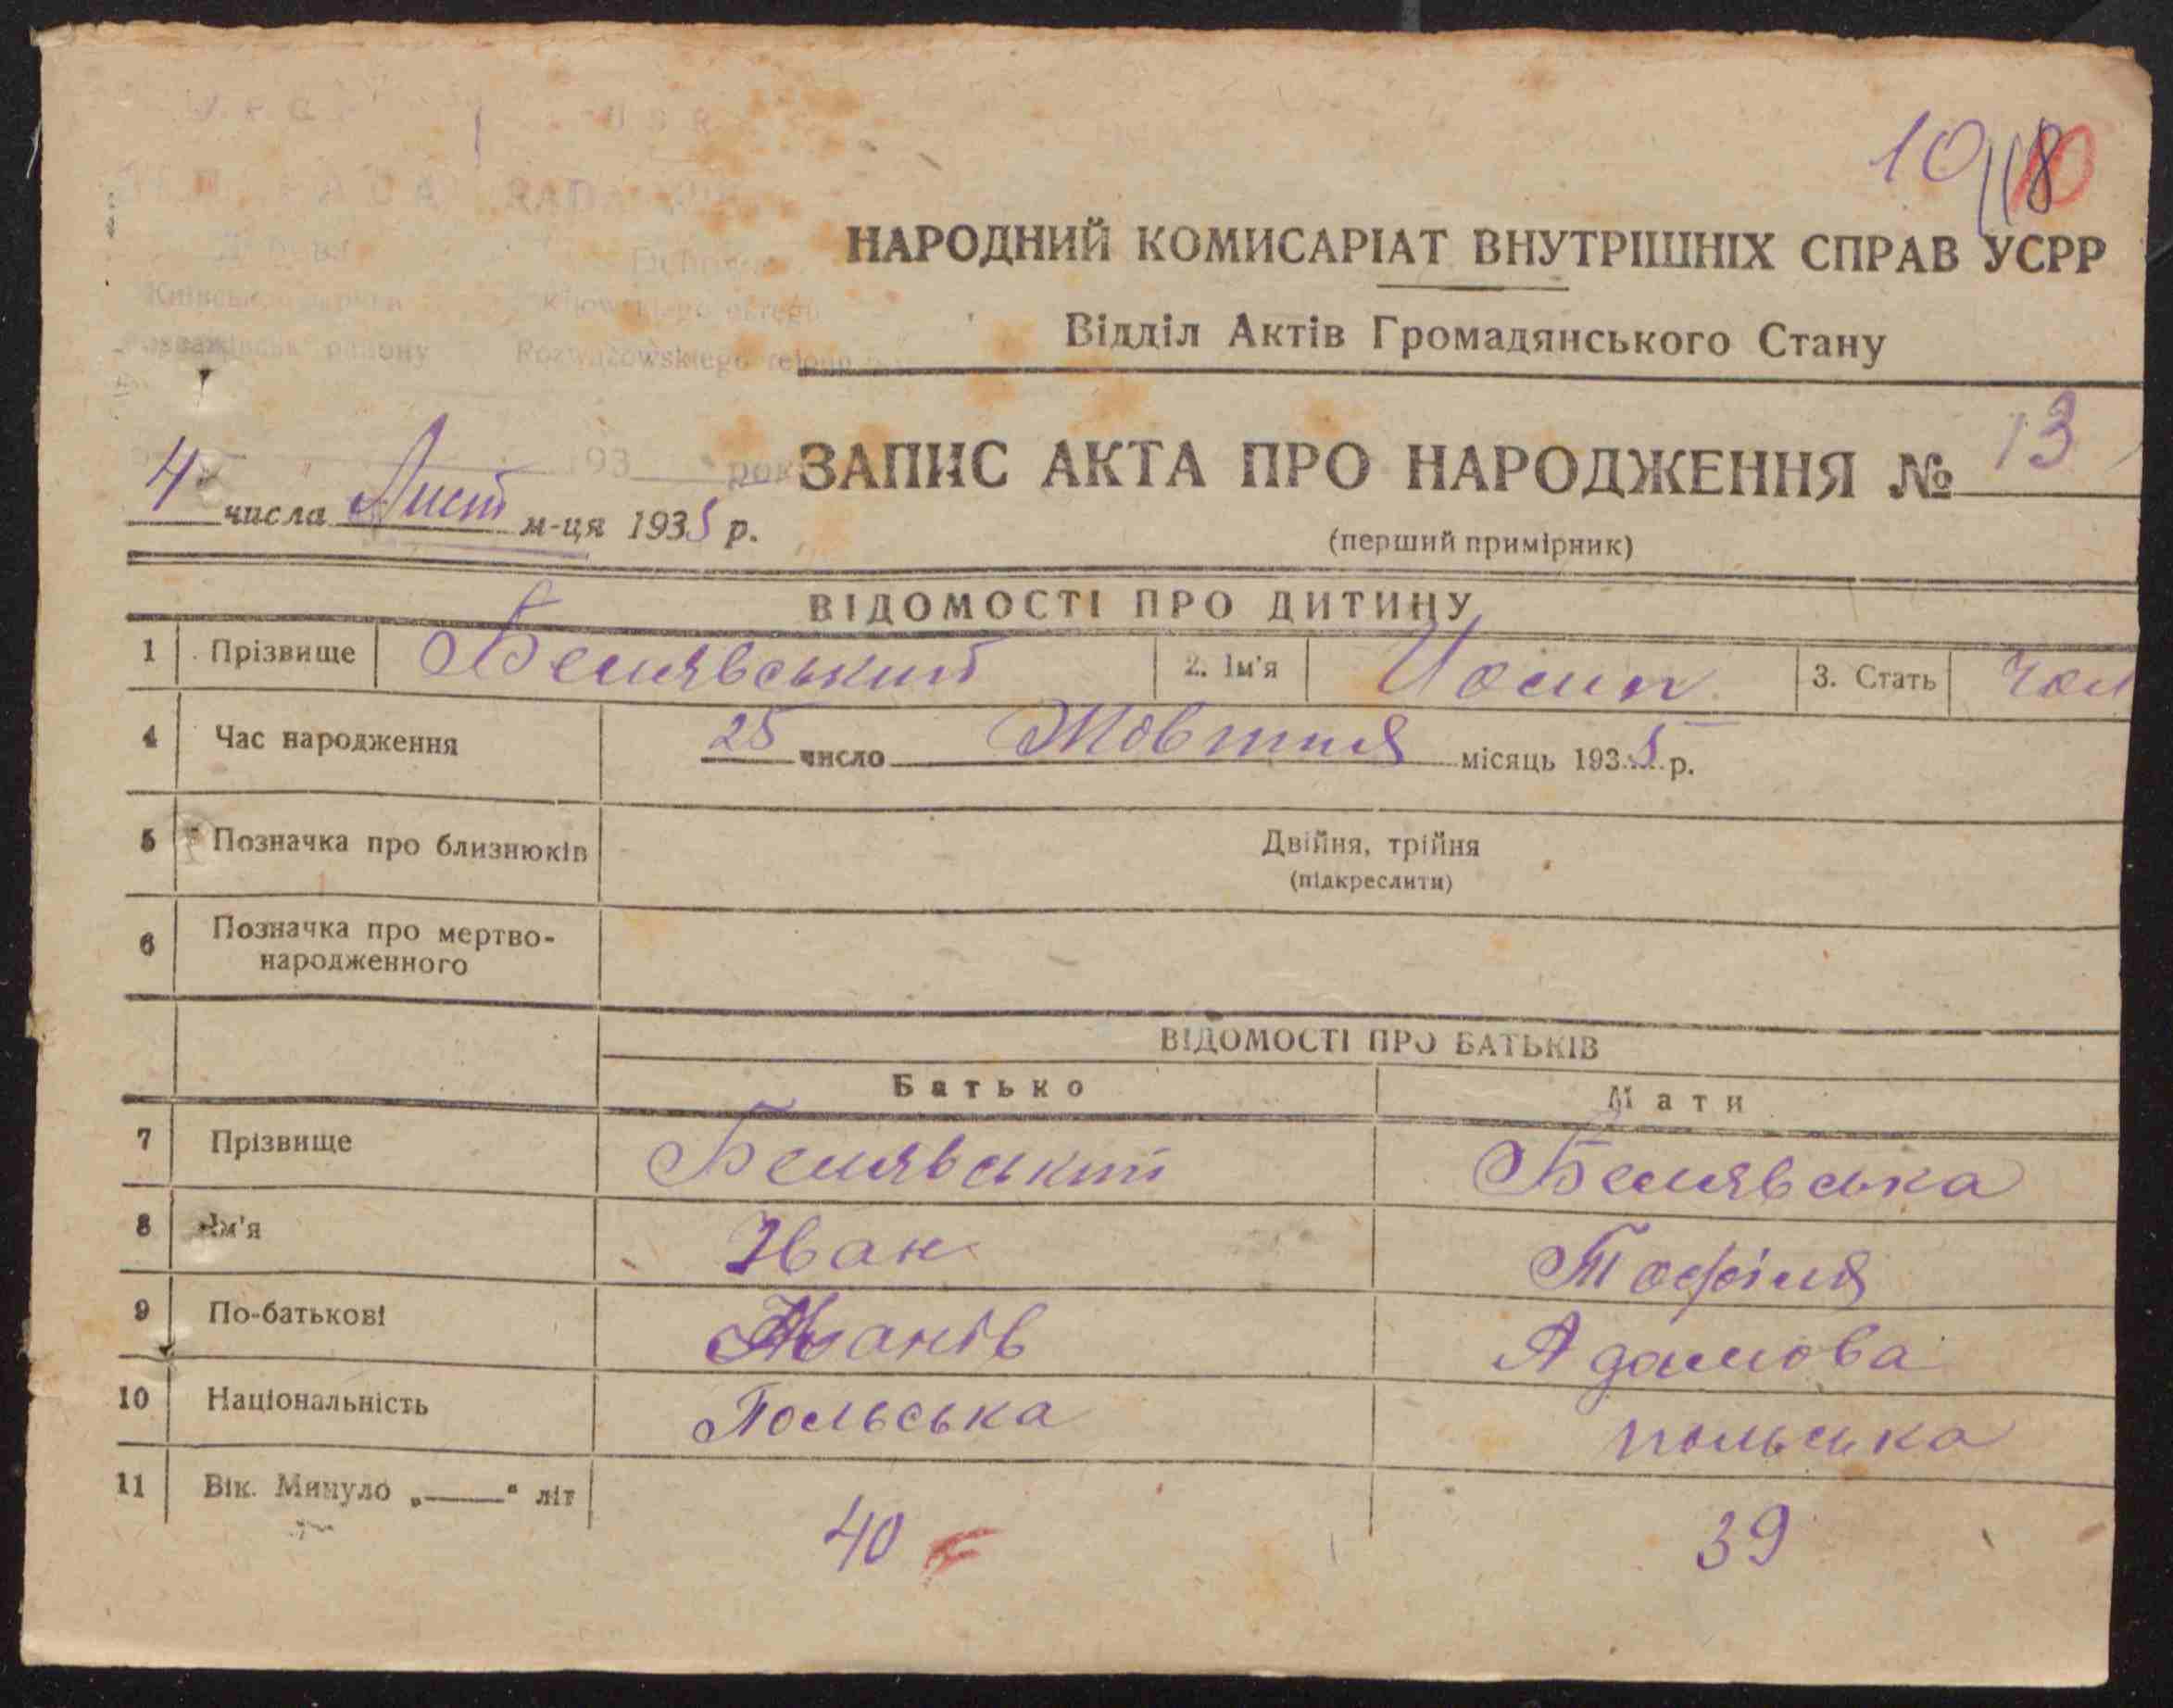 10 118 10
У С Р Р U S R R
РАДА RADA
Київської округи Kijowskiego okręgu
району Rozważowskiego rejonu
НАРОДНИЙ КОМИСАРІАТ ВНУТРІШНІХ СПРАВ УСРР
Відділ Актів Громадянського Стану
193 рок
ЗАПИС АКТА ПРО НАРОДЖЕННЯ № 13
4 числа Лист м-ця 1935 р.
(перший примірник)
ВІДОМОСТІ ПРО ДИТИНУ
1 Прізвище Белявський 2. Ім'я Йосип 3. Стать чол
4 Час народження 25 число Жовтня місяць 1935 р.
5 Позначка про близнюків Двійня, трійня
(підкреслити)
6 Позначка про мертво-
народженного
ВІДОМОСТІ ПРО БАТЬКІВ
Батько Мати
7 Прізвище Белявський Белявська
8 Ім'я Іван Тофіля
9 По-батькові Іванів Адамова
10 Національність Польська польська
11 Вік. Минуло „——“ літ 40 39